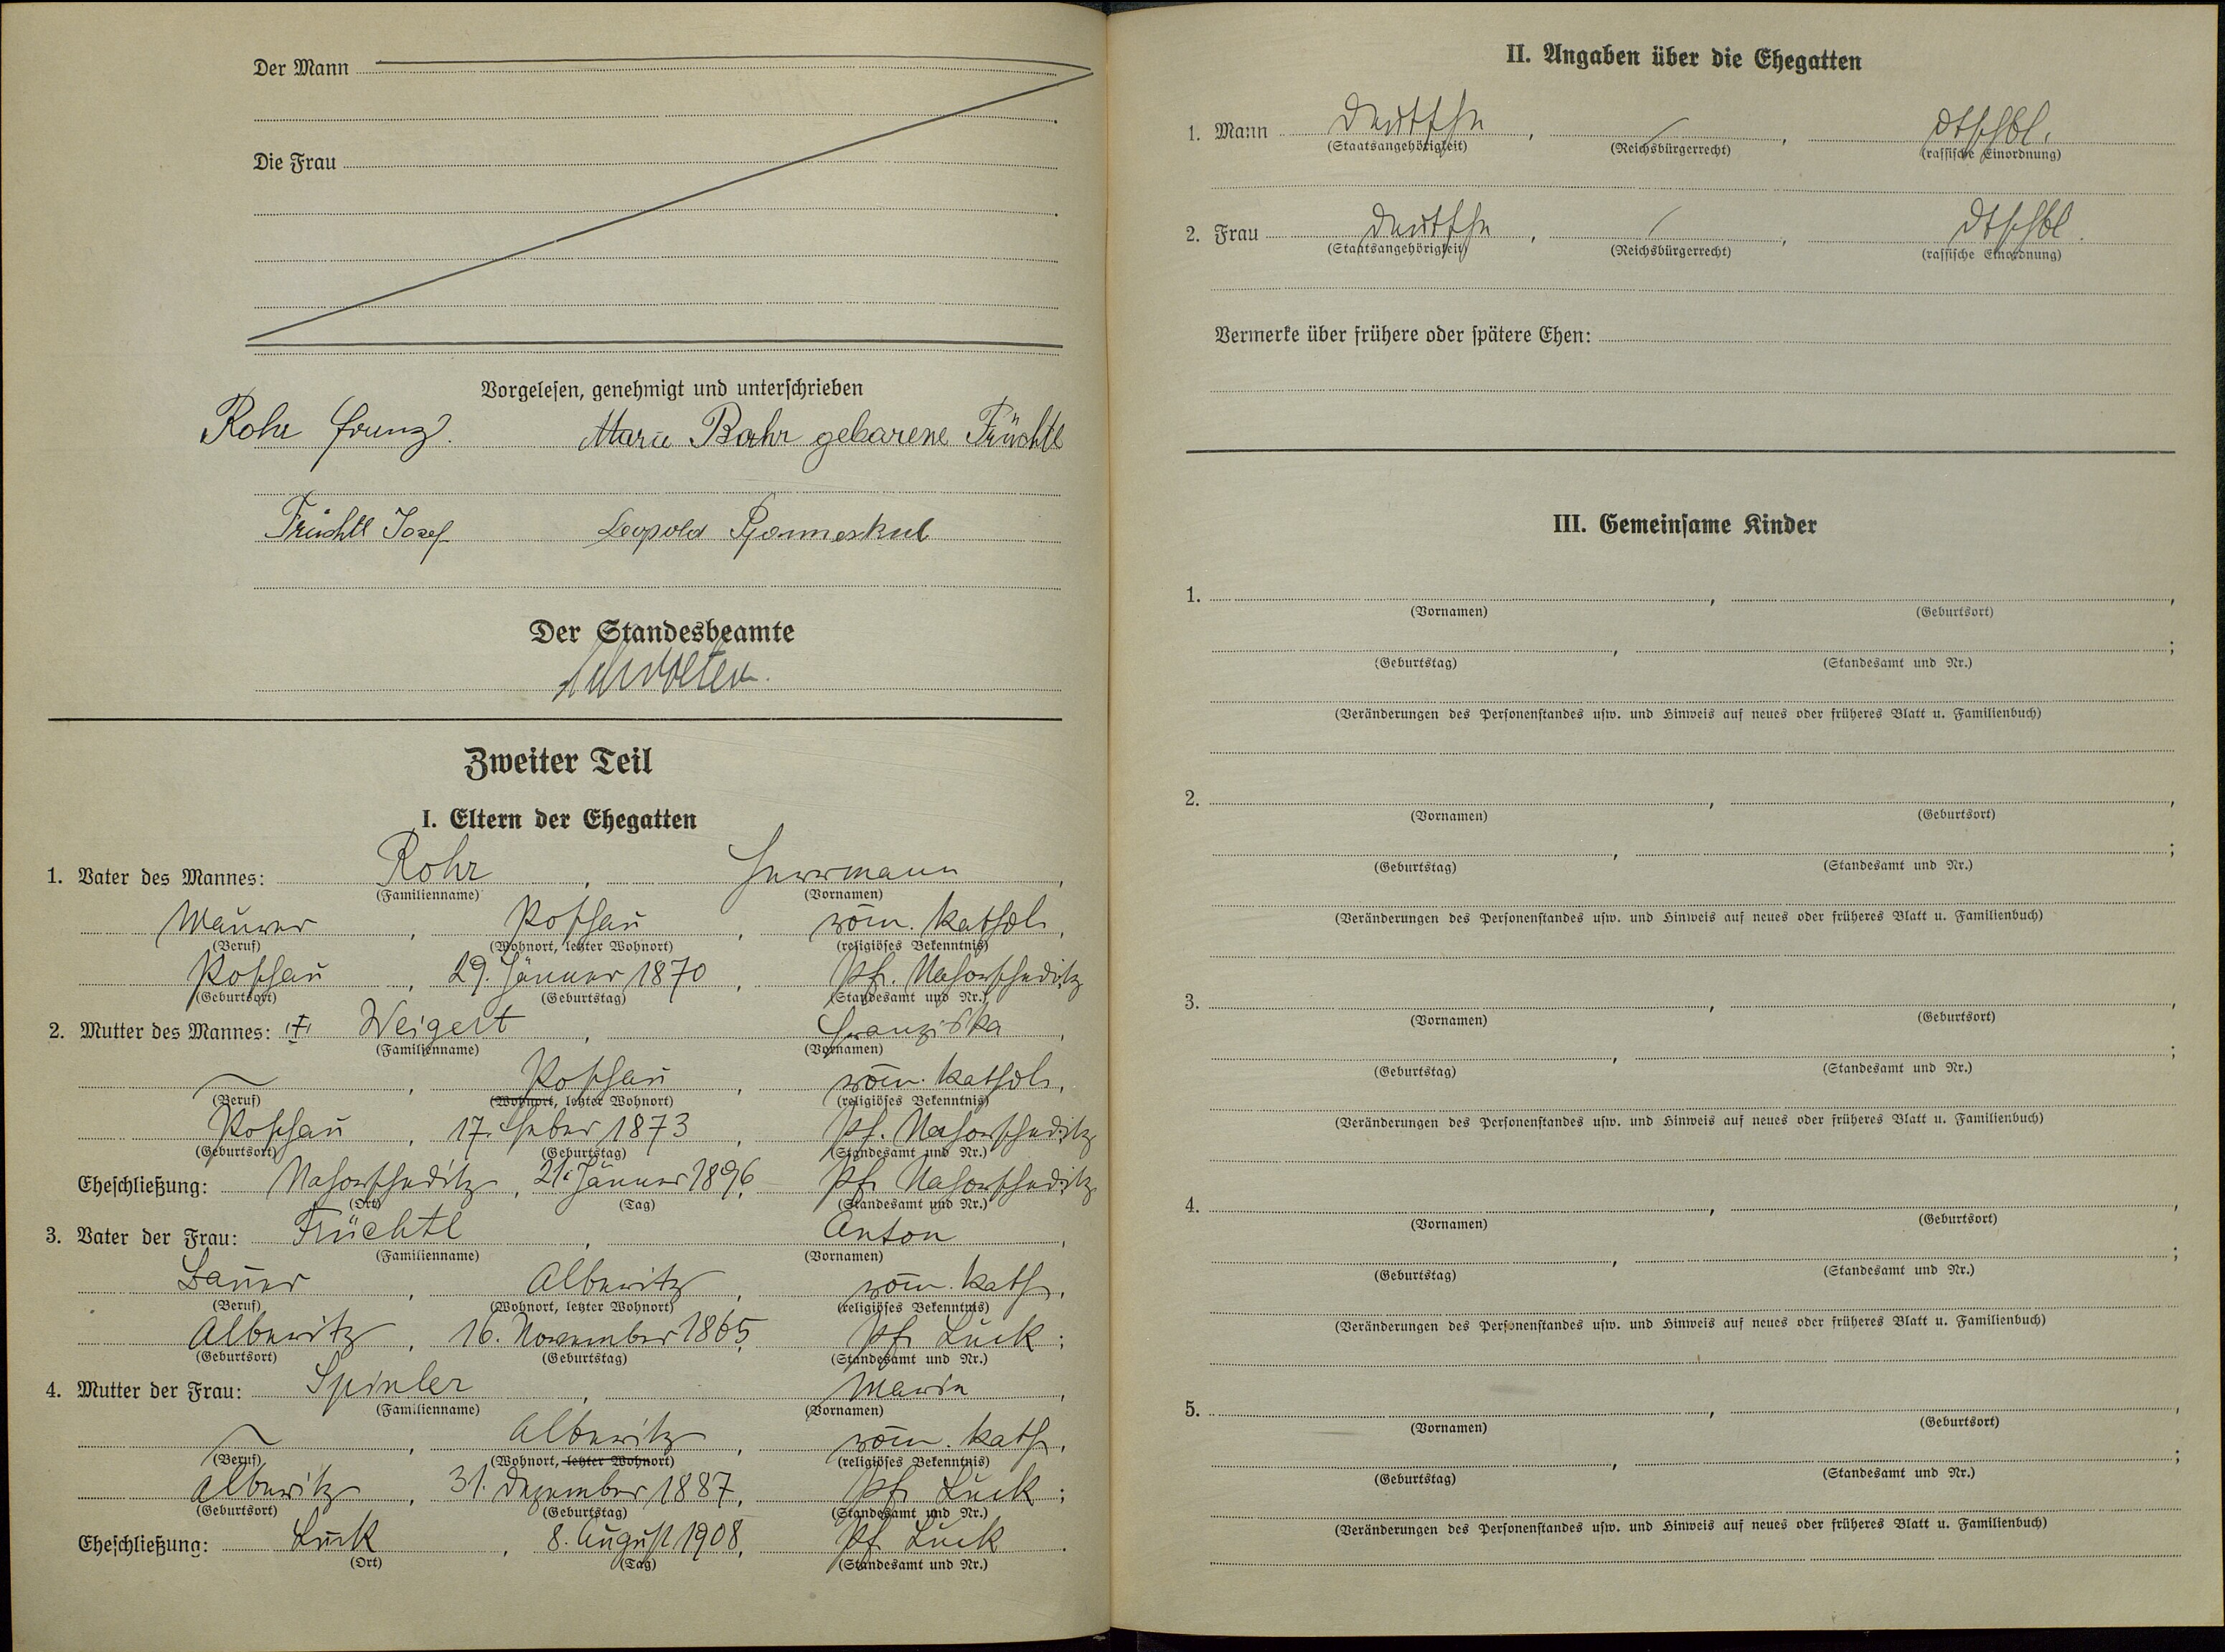 Der Mann
Die Frau
Vorgelesen, genehmigt und unterschrieben
Rohr Franz. Marie Rohr geborene Früchtl
Früchtl Josef Leopold
Der Standesbeamte
Zweiter Teil
I. Eltern der Ehegatten
1. Vater des Mannes: Rohr, Herrmann,
(Familienname) (Vornamen)
Maurer, Poschau, röm. kathol.,
(Beruf) (Wohnort, letzter Wohnort) (religiöses Bekenntnis)
Poschau, 29. Jänner 1870, Pf. Nahorscheditz
(Geburtsort) (Geburtstag) (Standesamt und Nr.)
2. Mutter des Mannes: Weigert, Franziska,
(Familienname) (Vornamen)
—, Poschau, röm. kathol.,
(Beruf) (Wohnort, letzter Wohnort) (religiöses Bekenntnis)
Poschau, 17. Feber 1873, Pf. Nahorscheditz
(Geburtsort) (Geburtstag) (Standesamt und Nr.)
Eheschließung: Nahorscheditz, 21. Jänner 1896, Pf. Nahorscheditz
(Ort) (Tag) (Standesamt und Nr.)
3. Vater der Frau: Früchtl, Anton,
(Familienname) (Vornamen)
Bauer, Alberitz, röm. kath.,
(Beruf) (Wohnort, letzter Wohnort) (religiöses Bekenntnis)
Alberitz, 16. November 1865, Pf. Luck;
(Geburtsort) (Geburtstag) (Standesamt und Nr.)
4. Mutter der Frau: Spinler, Marie,
(Familienname) (Vornamen)
—, Alberitz, röm. kath.,
(Beruf) (Wohnort, letzter Wohnort) (religiöses Bekenntnis)
Alberitz, 31. Dezember 1887, Pf. Luck;
(Geburtsort) (Geburtstag) (Standesamt und Nr.)
Eheschließung: Luck, 8. August 1908, Pf. Luck.
(Ort) (Tag) (Standesamt und Nr.)
II. Angaben über die Ehegatten
1. Mann Deutsche, /, dtschbl.
(Staatsangehörigkeit) (Reichsbürgerrecht) (rassische Einordnung)
2. Frau Deutsche, /, dtschbl.
(Staatsangehörigkeit) (Reichsbürgerrecht) (rassische Einordnung)
Vermerke über frühere oder spätere Ehen:
III. Gemeinsame Kinder
1. , ,
(Vornamen) (Geburtsort)
, ;
(Geburtstag) (Standesamt und Nr.)
(Veränderungen des Personenstandes usw. und Hinweis auf neues oder früheres Blatt u. Familienbuch)
2. , ,
(Vornamen) (Geburtsort)
, ;
(Geburtstag) (Standesamt und Nr.)
(Veränderungen des Personenstandes usw. und Hinweis auf neues oder früheres Blatt u. Familienbuch)
3. , ,
(Vornamen) (Geburtsort)
, ;
(Geburtstag) (Standesamt und Nr.)
(Veränderungen des Personenstandes usw. und Hinweis auf neues oder früheres Blatt u. Familienbuch)
4. , ,
(Vornamen) (Geburtsort)
, ;
(Geburtstag) (Standesamt und Nr.)
(Veränderungen des Personenstandes usw. und Hinweis auf neues oder früheres Blatt u. Familienbuch)
5. , ,
(Vornamen) (Geburtsort)
, ;
(Geburtstag) (Standesamt und Nr.)
(Veränderungen des Personenstandes usw. und Hinweis auf neues oder früheres Blatt u. Familienbuch)